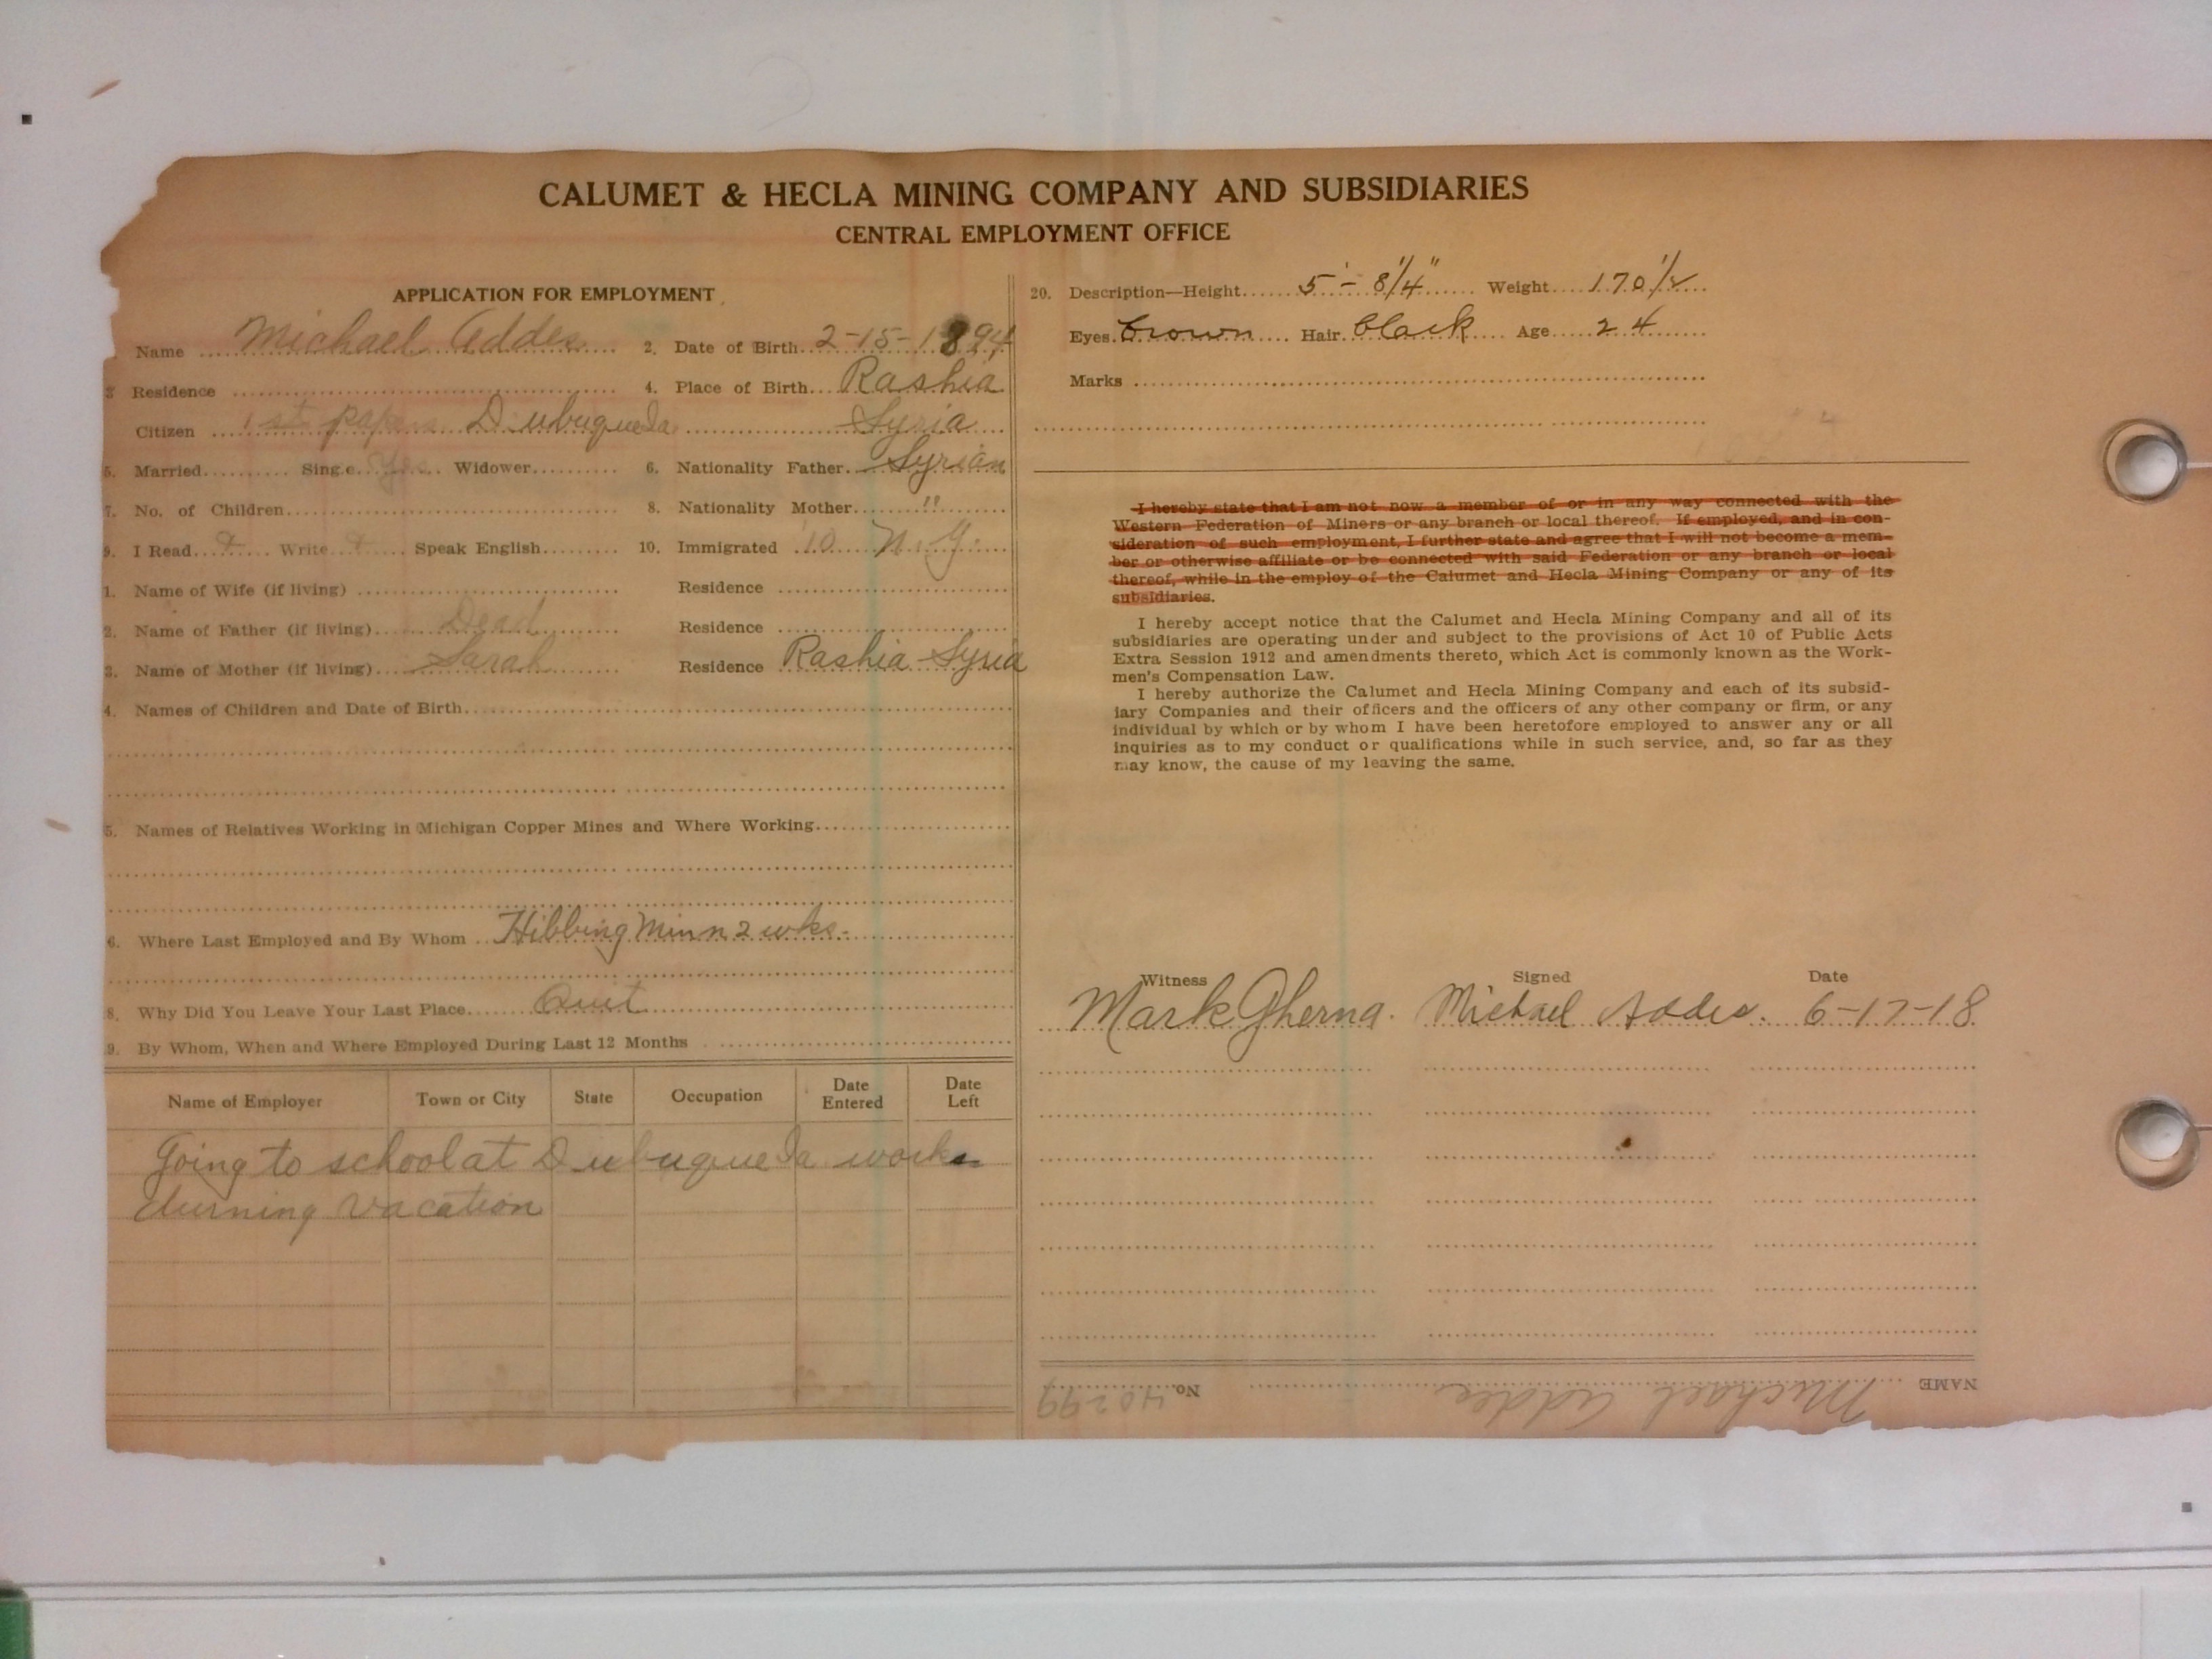 CALUMET & HECLA MINING COMPANY AND SUBSIDIARIES
CENTRAL EMPLOYMENT OFFICE
APPLICATION FOR EMPLOYMENT
Name Michael Addes 2. Date of Birth 2-15-1894
3 Residence 4. Place of Birth Rashia
Citizen 1st papers Dubuque Ia Syria
5. Married Single Yes Widower 6. Nationality Father Syrian
7. No. of Children 8. Nationality Mother "
9. I Read Write Speak English 10. Immigrated '10 N.Y.
1. Name of Wife (if living) Residence
2. Name of Father (if living) Dead Residence
3. Name of Mother (if living) Sarah Residence Rashia Syria
4. Names of Children and Date of Birth
5. Names of Relatives Working in Michigan Copper Mines and Where Working
6. Where Last Employed and By Whom Hibbing Minn 2 wks.
8. Why Did You Leave Your Last Place Quit
9. By Whom, When and Where Employed During Last 12 Months
Name of Employer Town or City State Occupation Date Entered Date Left
Going to school at Dubuque Ia works
durning vacation
20. Description—Height 5'- 8 1/4" Weight 170 1/2
Eyes brown Hair black Age 24
Marks
I hereby state that I am not now a member of or in any way connected with the
Western Federation of Miners or any branch or local thereof. If employed, and in con-
sideration of such employment, I further state and agree that I will not become a mem-
ber or otherwise affiliate or be connected with said Federation or any branch or local
thereof, while in the employ of the Calumet and Hecla Mining Company or any of its
subsidiaries.
I hereby accept notice that the Calumet and Hecla Mining Company and all of its
subsidiaries are operating under and subject to the provisions of Act 10 of Public Acts
Extra Session 1912 and amendments thereto, which Act is commonly known as the Work-
men's Compensation Law.
I hereby authorize the Calumet and Hecla Mining Company and each of its subsid-
iary Companies and their officers and the officers of any other company or firm, or any
individual by which or by whom I have been heretofore employed to answer any or all
inquiries as to my conduct or qualifications while in such service, and, so far as they
may know, the cause of my leaving the same.
Witness Signed Date
Mark Gherna. Michael Addes. 6-17-18
NAME Michael Addes No. 40299